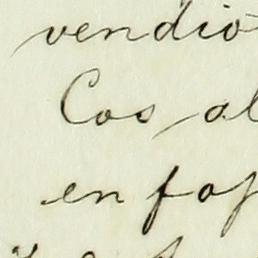 vendio
Cos al
en faj